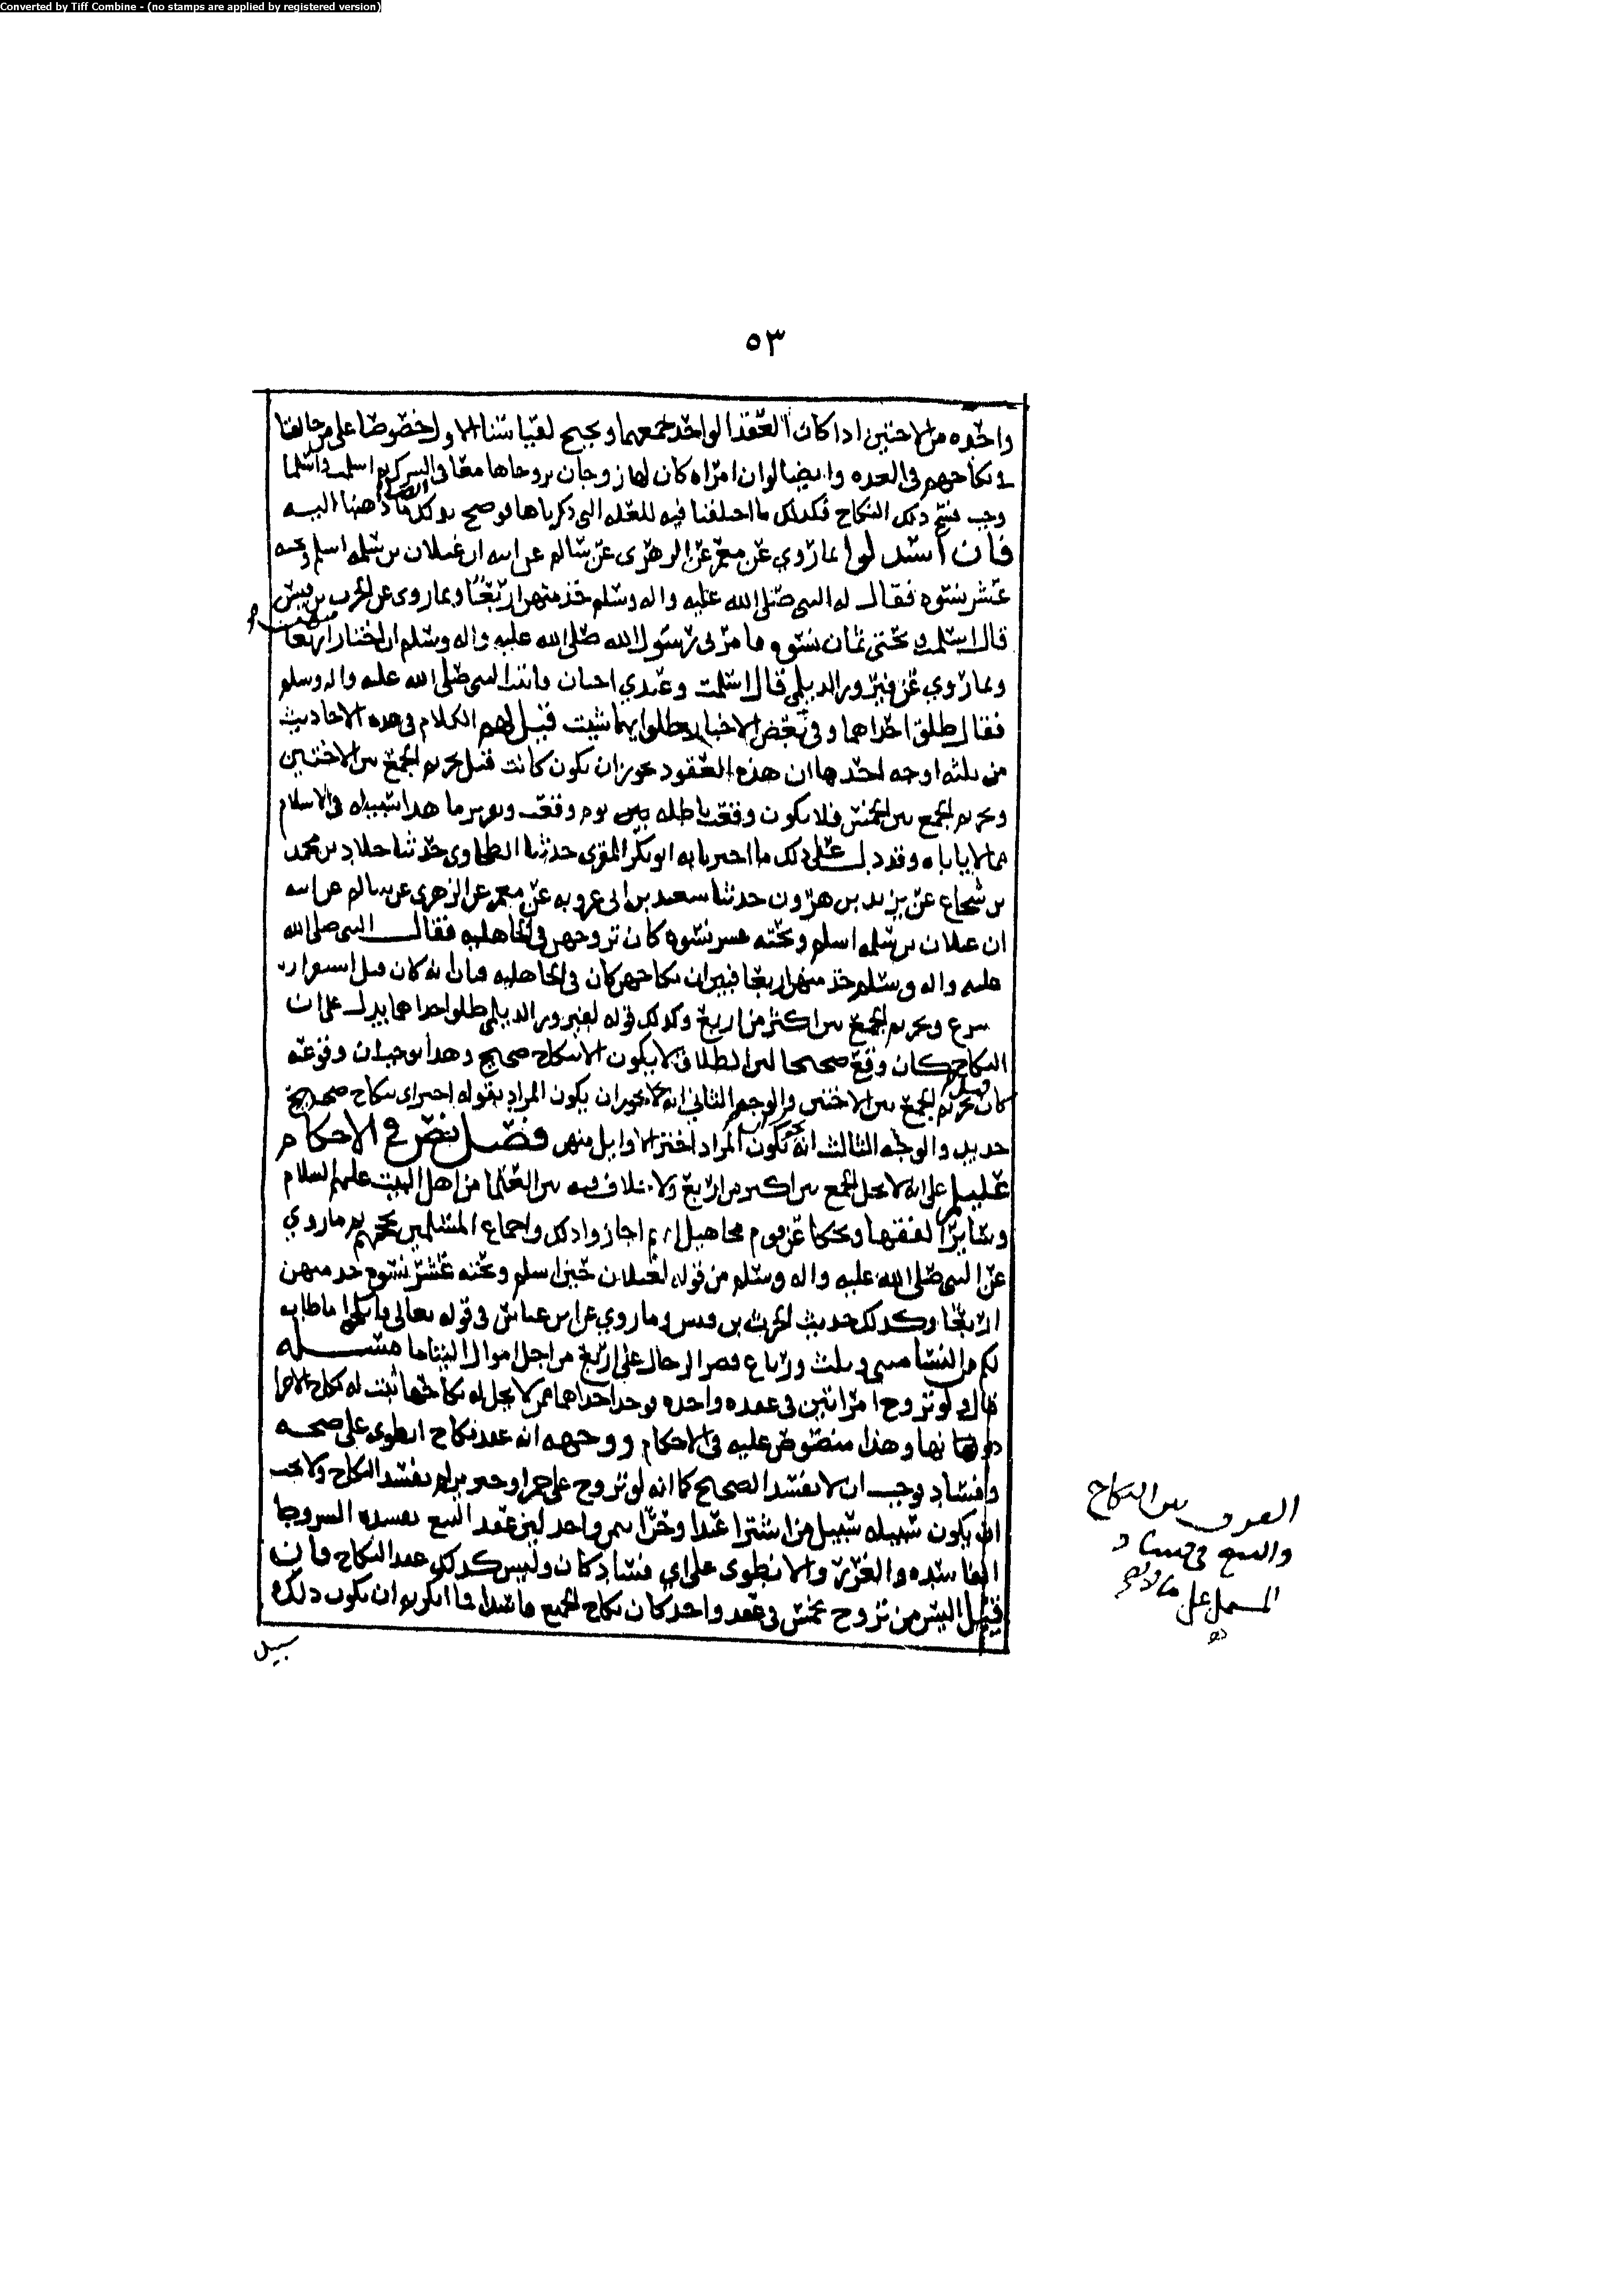 Converted by Tiff Combine - (no stamps are applied by registered version)
٥٣
واحده من الاختين اذا كان العقد الواحد جمعهما ويجمح لقياسنا الاول خصوصا على من خالفنا
في نكاحهم في العده وايضا لو ان امراه كان لها زوجان تزوجاها معا في الشرك ثم اسلمت واسلما
وجب فسخ ذلك النكاح فكذلك ما اختلفنا فيه للعله التي ذكرناها فوضح بذلك ما ذهبنا اليه
فان استدلوا بما روي عن معمر عن الزهري عن سالم عن ابيه ان غيلان بن سلمه اسلم وتحته
عشر نسوه فقال له النبي صلى الله عليه واله وسلم خذ منهن اربعا وبما روي عن الحرث بن قيس
قال اسلمت وتحتي ثمان نسوه فامرني رسول الله صلى الله عليه واله وسلم ان اختار منهن اربعا
وبما روي عن فيروز الديلمي قال اسلمت وعندي اختان فاتيت النبي صلى الله عليه واله وسلم
فقال طلق احداهما وفي بعض الاخبار طلق ايهما شيت قيل لهم الكلام في هذه الاحاديث
من ثلثه اوجه احدها ان هذه العقود يجوز ان تكون كانت قبل تحريم الجمع بين الاختين
وتحريم الجمع بين الخمس فلا تكون وقعت باطله يوم وقعت وما هذا سبيله في الاسلام
مما لا ياباه وقد دل على ذلك ما اخبرنا به ابو بكر المقري حدثنا الطحاوي حدثنا خلاد بن محمد
بن شجاع عن يزيد بن هرون حدثنا سعيد بن ابي عروبه عن معمر عن الزهري عن سالم عن ابيه
ان غيلان بن سلمه اسلم وتحته عشر نسوه كان تزوجهن في الجاهليه فقال النبي صلى الله
عليه واله وسلم خذ منهن اربعا فبين ان نكاحهن كان في الجاهليه فبان انه كان قبل استقرار
شرع وتحريم الجمع بين اكثر من اربع وكذلك قوله لفيروز الديلمي طلق احداهما يدل على ان
النكاح كان وقع صحيحا لان الطلاق لا يكون الا في نكاح صحيح وهذا يوجب ان وقوعه
كان قبل تحريم الجمع بين الاختين والوجه الثاني انه لا يجوز ان يكون المراد بقوله اختر اي بنكاح صحيح
جديد والوجه الثالث انه يجوز ان يكون المراد اختر الاوايل منهن فصل نص في الاحكام
على انه لا يحل الجمع بين اكثر من اربع ولا خلاف فيه بين العلما من اهل البيت عليهم السلام
وساير الفقها ويحكا عن قوم مجاهيل انهم اجازوا ذلك واجماع المسلمين يحجهم ثم ما روي
عن النبي صلى الله عليه واله وسلم من قوله لغيلان حين اسلم وتحته عشر نسوه خذ منهن
اربعا وكذلك حديث الحرث بن قيس وما روي عن ابن عباس في قوله تعالى فانكحوا ما طاب
لكم من النسا مثنى وثلث ورباع قصر الرجال على اربع من اجل اموال اليتاما مسئله
قال ولو تزوج امراتين في عقده واحده فوجد احداهما ممن لا يحل له نكاحها ثبت له نكاح الاخرا
وهذا منصوص عليه في الاحكام ووجهه انه عقد نكاح انطوى على صحه
وفساد فوجب ان لا يفسد الصحيح كما انه لو تزوج على خمر او خنزير لم يفسد النكاح ولا يجب
ان يكون سبيله سبيل من اشترا عبدا وحرا بثمن واحد لان عقد البيع تفسده الشروط
الفاسده والغرر والانطوى على اي فساد كان وليس كذلك عقد النكاح فان
قيل اليس من تزوج بخمس في عقد واحد كان نكاح الجميع فاسدا فما انكرتم ان يكون ذلك
سبيل
الفرق بين النكاح
والبيع في فساد
المشتمل على